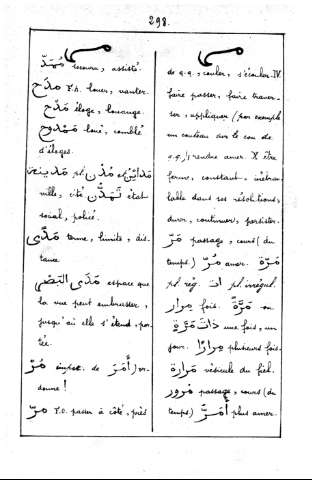 298.
مُمَدّ secouru, assisté.
مَدَح F.A. louer, vanter.
مَدْح éloge, louange.
مَمْدوح loué, comblé
d'éloges.
مَدينة pl. مُدُن et مَدائِن
ville, cité تَمَدُّن état
social, police.
مَدًى terme, limite, dis-
tance.
مَدَى البَصَر espace que
la vue peut embrasser,
jusqu'où elle s'étend, por-
tée.
مُرْ impér. de أَمَرَ) or-
donne!
مرّ F.O. passer à côté, près
de q.q., couler, s'écouler. IV
faire passer, faire traver-
ser, appliquer (par exemple
un couteau sur le cou de
q.q.) rendre amer. X être
ferme, constant, inébran-
lable dans ses résolutions,
durer, continuer, persister.
مَرّ passage, cours (du
temps.) مُرّ amer. مَرّة
pl. rég. ات pl. irrégul.
مِرار fois. مَرَّةً ou
ذاتَ مَرَّة une fois, un
jour. مِرارًا plusieurs fois.
مَرارة vésicule du fiel.
مُرور passage, cours (du
temps) أَمَرّ plus amer.